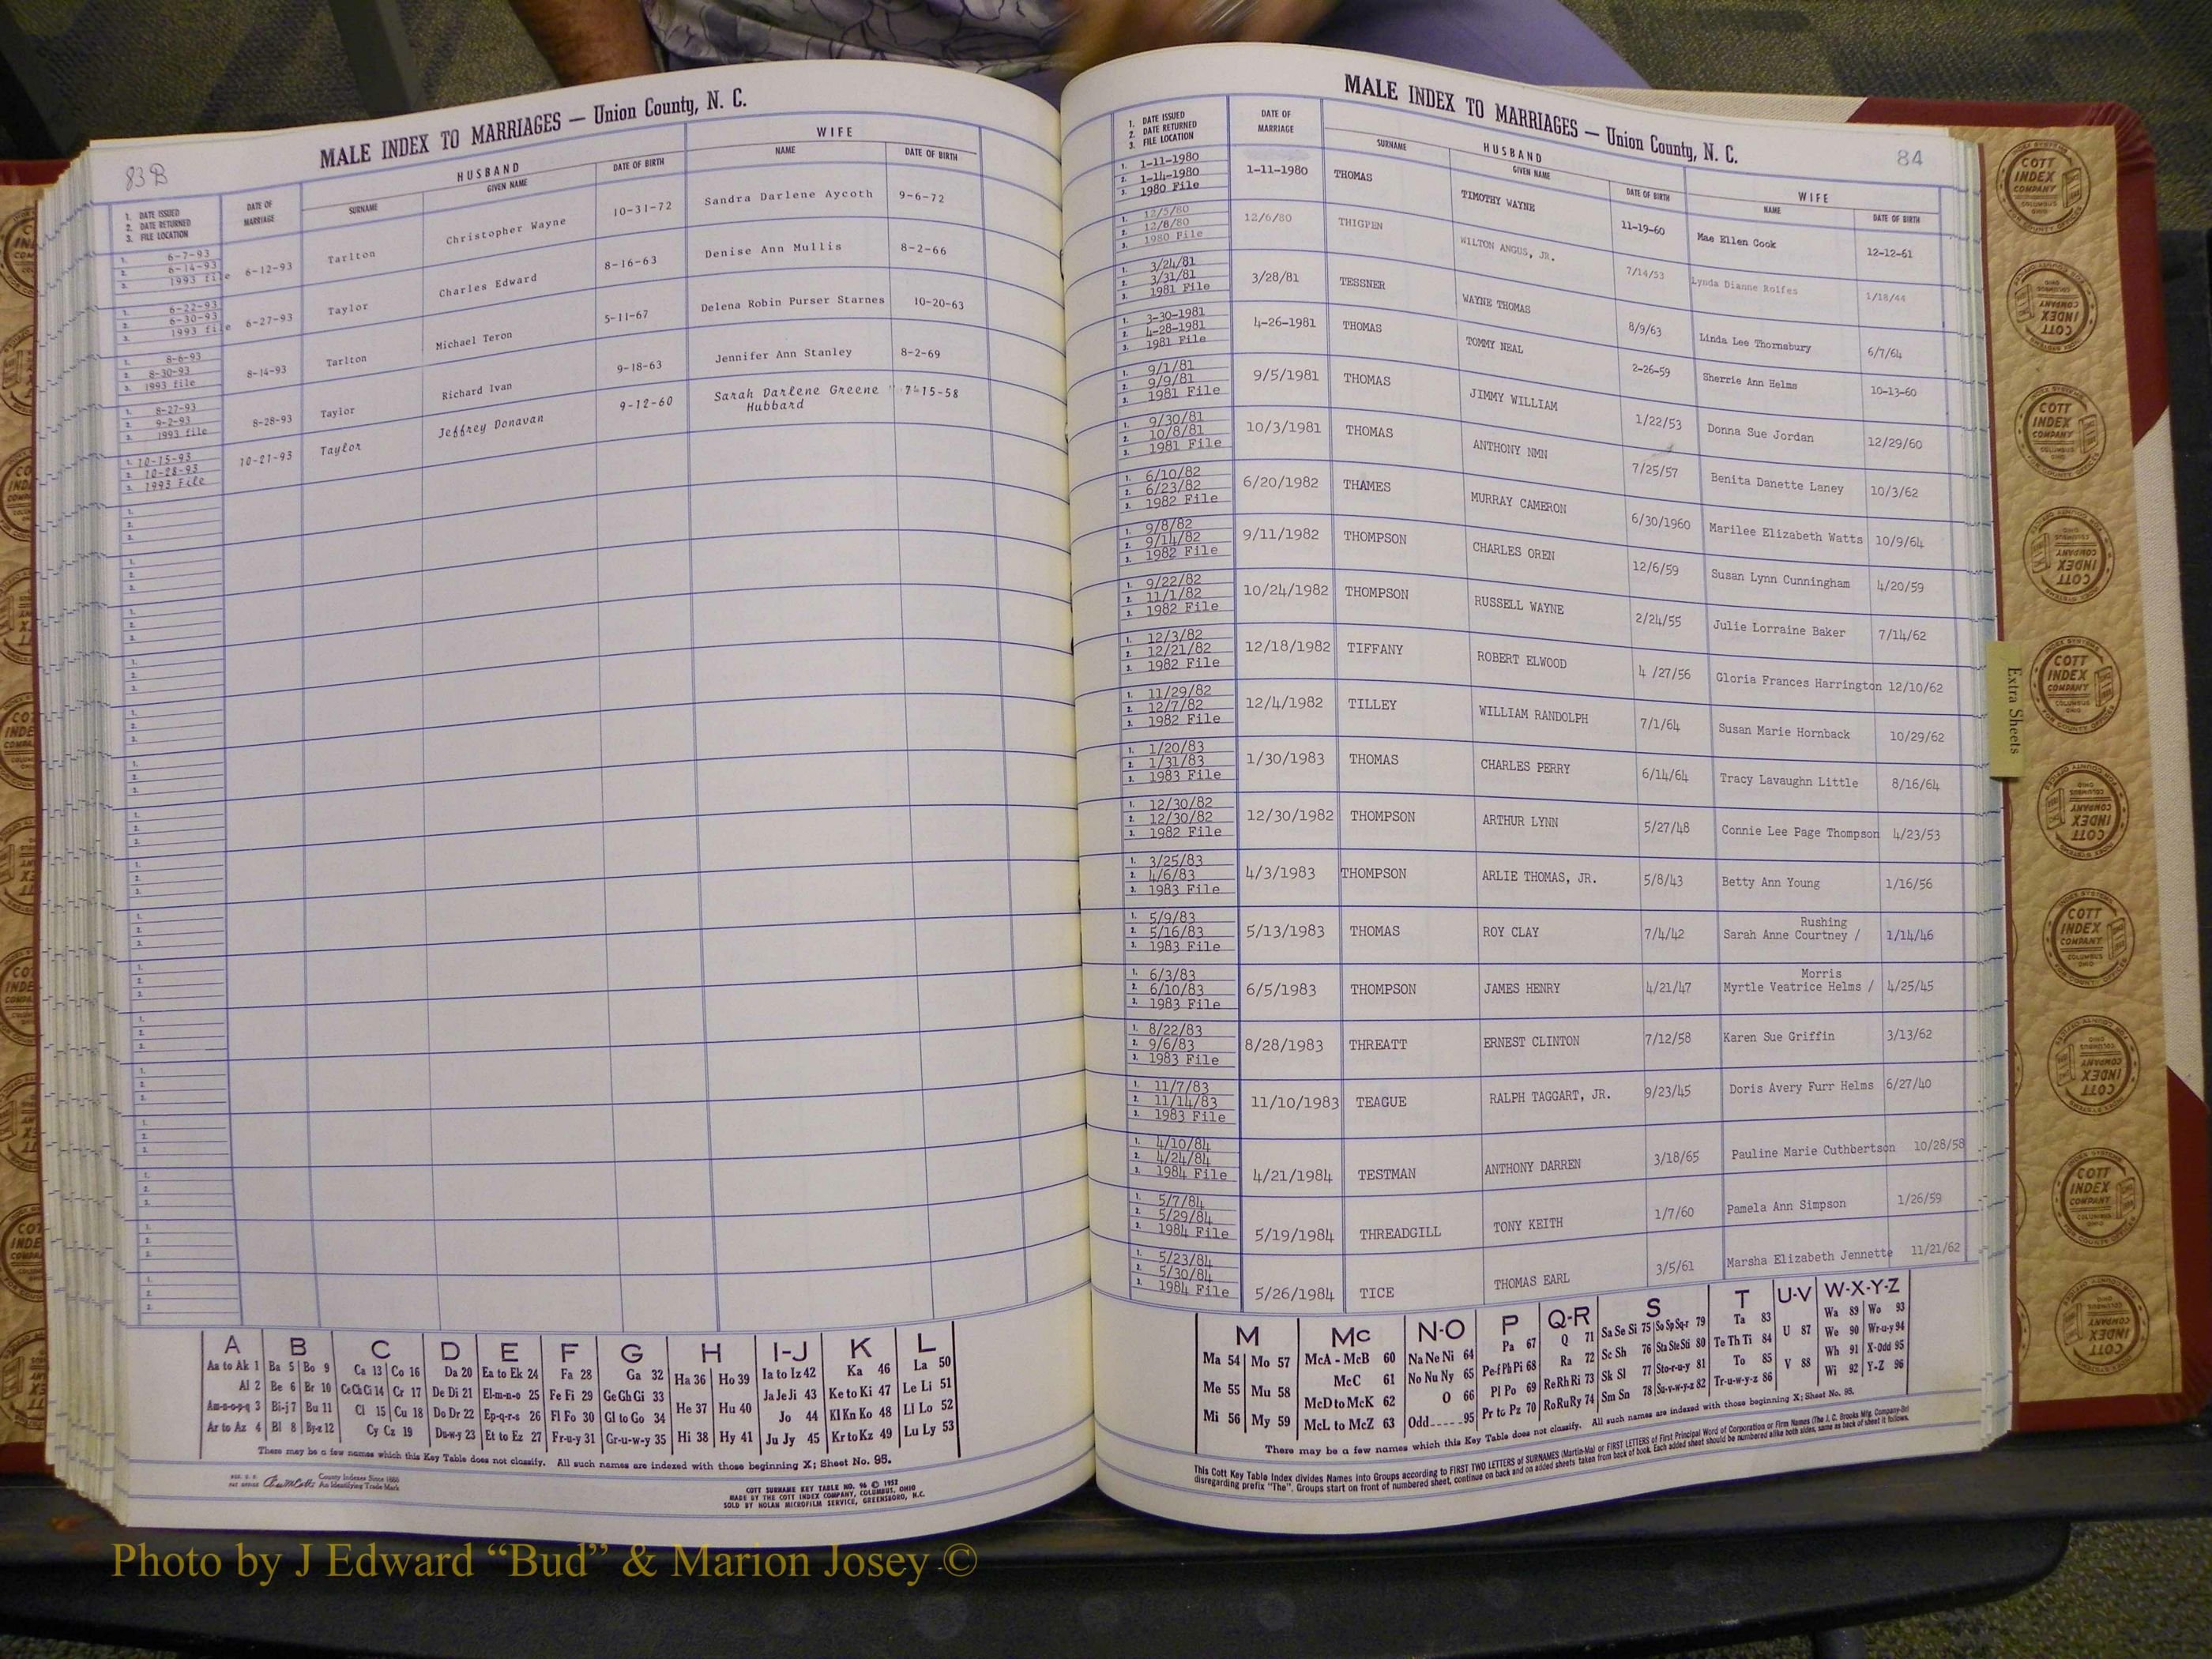 83B
MALE INDEX TO MARRIAGES — Union County, N. C.
1. DATE ISSUED
2. DATE RETURNED
3. FILE LOCATION
DATE OF MARRIAGE
HUSBAND
SURNAME GIVEN NAME DATE OF BIRTH
WIFE
NAME DATE OF BIRTH
1. 6-7-93
2. 6-14-93 6-12-93 Tarlton Christopher Wayne 10-31-72 Sandra Darlene Aycoth 9-6-72
3. 1993 file
1. 6-22-93
2. 6-30-93 6-27-93 Taylor Charles Edward 8-16-63 Denise Ann Mullis 8-2-66
3. 1993 file
1. 8-6-93
2. 8-30-93 8-14-93 Tarlton Michael Teron 5-11-67 Delena Robin Purser Starnes 10-20-63
3. 1993 file
1. 8-27-93
2. 9-2-93 8-28-93 Taylor Richard Ivan 9-18-63 Jennifer Ann Stanley 8-2-69
3. 1993 file
1. 10-15-93
2. 10-28-93 10-21-93 Taylor Jeffrey Donavan 9-12-60 Sarah Darlene Greene Hubbard 7-15-58
3. 1993 File
A
Aa to Ak 1
Al 2
Am-n-o-p-q 3
Ar to Az 4
B
Ba 5 Bo 9
Be 6 Br 10
Bi-j 7 Bu 11
Bl 8 By-z 12
C
Ca 13 Co 16
Ce Ch Ci 14 Cr 17
Cl 15 Cu 18
Cy Cz 19
D
Da 20
De Di 21
Do Dr 22
Du-w-y 23
E
Ea to Ek 24
El-m-n-o 25
Ep-q-r-s 26
Et to Ez 27
F
Fa 28
Fe Fi 29
Fl Fo 30
Fr-u-y 31
G
Ga 32
Ge Gh Gi 33
Gl to Go 34
Gr-u-w-y 35
H
Ha 36 Ho 39
He 37 Hu 40
Hi 38 Hy 41
I-J
Ia to Iz 42
Ja Je Ji 43
Jo 44
Ju Jy 45
K
Ka 46
Ke to Ki 47
Kl Kn Ko 48
Kr to Kz 49
L
La 50
Le Li 51
Ll Lo 52
Lu Ly 53
There may be a few names which this Key Table does not classify. All such names are indexed with those beginning X; Sheet No. 95.
County Indexes Since 1888
An Identifying Trade Mark
COTT SURNAME KEY TABLE NO. 96 © 1952
MADE BY THE COTT INDEX COMPANY, COLUMBUS, OHIO
SOLD BY NOLAN MICROFILM SERVICE, GREENSBORO, N.C.
MALE INDEX TO MARRIAGES — Union County, N. C.
84
1. DATE ISSUED
2. DATE RETURNED
3. FILE LOCATION
DATE OF MARRIAGE
HUSBAND
SURNAME GIVEN NAME DATE OF BIRTH
WIFE
NAME DATE OF BIRTH
1. 1-11-1980
2. 1-14-1980 1-11-1980 THOMAS TIMOTHY WAYNE 11-19-60 Mae Ellen Cook 12-12-61
3. 1980 File
1. 12/5/80
2. 12/8/80 12/6/80 THIGPEN WILTON ANGUS, JR. 7/14/53 Lynda Dianne Rolfes 1/18/44
3. 1980 File
1. 3/24/81
2. 3/31/81 3/28/81 TESSNER WAYNE THOMAS 8/9/63 Linda Lee Thornsbury 6/7/64
3. 1981 File
1. 3-30-1981
2. 4-28-1981 4-26-1981 THOMAS TOMMY NEAL 2-26-59 Sherrie Ann Helms 10-13-60
3. 1981 File
1. 9/1/81
2. 9/9/81 9/5/1981 THOMAS JIMMY WILLIAM 1/22/53 Donna Sue Jordan 12/29/60
3. 1981 File
1. 9/30/81
2. 10/8/81 10/3/1981 THOMAS ANTHONY NMN 7/25/57 Benita Danette Laney 10/3/62
3. 1981 File
1. 6/10/82
2. 6/23/82 6/20/1982 THAMES MURRAY CAMERON 6/30/1960 Marilee Elizabeth Watts 10/9/64
3. 1982 File
1. 9/8/82
2. 9/14/82 9/11/1982 THOMPSON CHARLES OREN 12/6/59 Susan Lynn Cunningham 4/20/59
3. 1982 File
1. 9/22/82
2. 11/1/82 10/24/1982 THOMPSON RUSSELL WAYNE 2/24/55 Julie Lorraine Baker 7/14/62
3. 1982 File
1. 12/3/82
2. 12/21/82 12/18/1982 TIFFANY ROBERT ELWOOD 4 /27/56 Gloria Frances Harrington 12/10/62
3. 1982 File
1. 11/29/82
2. 12/7/82 12/4/1982 TILLEY WILLIAM RANDOLPH 7/1/64 Susan Marie Hornback 10/29/62
3. 1982 File
1. 1/20/83
2. 1/31/83 1/30/1983 THOMAS CHARLES PERRY 6/14/64 Tracy Lavaughn Little 8/16/64
3. 1983 File
1. 12/30/82
2. 12/30/82 12/30/1982 THOMPSON ARTHUR LYNN 5/27/48 Connie Lee Page Thompson 4/23/53
3. 1982 File
1. 3/25/83
2. 4/6/83 4/3/1983 THOMPSON ARLIE THOMAS, JR. 5/8/43 Betty Ann Young 1/16/56
3. 1983 File
1. 5/9/83 Rushing
2. 5/16/83 5/13/1983 THOMAS ROY CLAY 7/4/42 Sarah Anne Courtney / 1/14/46
3. 1983 File
1. 6/3/83 Morris
2. 6/10/83 6/5/1983 THOMPSON JAMES HENRY 4/21/47 Myrtle Veatrice Helms / 4/25/45
3. 1983 File
1. 8/22/83
2. 9/6/83 8/28/1983 THREATT ERNEST CLINTON 7/12/58 Karen Sue Griffin 3/13/62
3. 1983 File
1. 11/7/83
2. 11/14/83 11/10/1983 TEAGUE RALPH TAGGART, JR. 9/23/45 Doris Avery Furr Helms 6/27/40
3. 1983 File
1. 4/10/84
2. 4/24/84 4/21/1984 TESTMAN ANTHONY DARREN 3/18/65 Pauline Marie Cuthbertson 10/28/58
3. 1984 File
1. 5/7/84
2. 5/29/84 5/19/1984 THREADGILL TONY KEITH 1/7/60 Pamela Ann Simpson 1/26/59
3. 1984 File
1. 5/23/84
2. 5/30/84 5/26/1984 TICE THOMAS EARL 3/5/61 Marsha Elizabeth Jennette 11/21/62
3. 1984 File
M
Ma 54 Mo 57
Me 55 Mu 58
Mi 56 My 59
Mc
McA - McB 60
McC 61
McD to McK 62
McL to McZ 63
N-O
Na Ne Ni 64
No Nu Ny 65
O 66
Odd 95
P
Pa 67
Pe-f Ph Pi 68
Pl Po 69
Pr to Pz 70
Q-R
Q 71
Ra 72
Re Rh Ri 73
Ro Ru Ry 74
S
Sa Se Si 75 So Sp Sq-r 79
Sc Sh 76 Sta Ste Sti 80
Sk Sl 77 Sto-r-u-y 81
Sm Sn 78 Su-v-w-y-z 82
T
Ta 83
Te Th Ti 84
To 85
Tr-u-w-y-z 86
U-V
U 87
V 88
W-X-Y-Z
Wa 89 Wo 93
We 90 Wr-u-y 94
Wh 91 X-Odd 95
Wi 92 Y-Z 96
There may be a few names which this Key Table does not classify. All such names are indexed with those beginning X; Sheet No. 95.
This Cott Key Table Index divides Names into Groups according to FIRST TWO LETTERS of SURNAMES (Martin-Ma) or FIRST LETTERS of First Principal Word of Corporation or Firm Names (The J. C. Brooks Mfg. Company-Br)
disregarding prefix "The". Groups start on front of numbered sheet, continue on back and on added sheets taken from back of book. Each added sheet should be numbered alike both sides, same as back of sheet it follows.
Extra Sheets
COTT INDEX COMPANY
COLUMBUS OHIO
Photo by J Edward “Bud” & Marion Josey ©